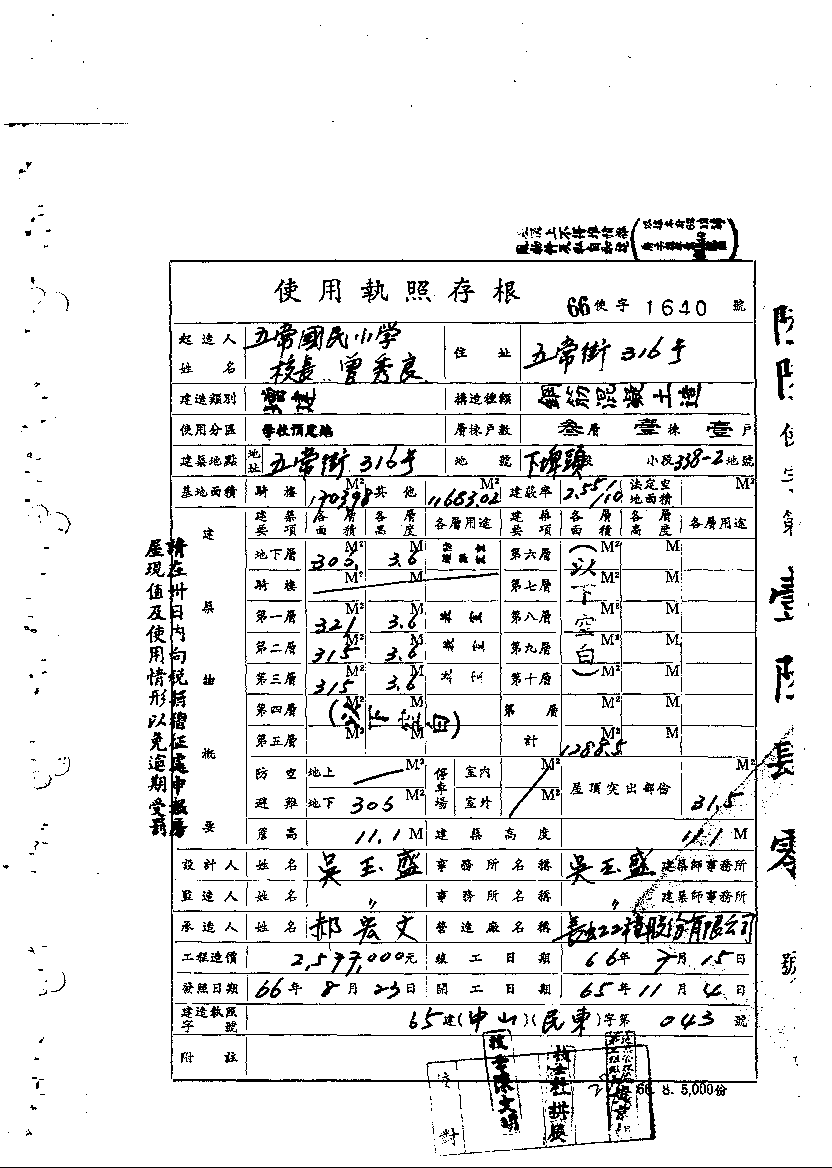 使用執照存根
66使字1640號
起造人姓名 五常國民小学 校長 曾秀良 住址 五常街316号
建造類別 增建 構造種類 鋼筋混凝土造
使用分區 層棟戶數 叁層壹棟壹戶
建築地點 地址 五常街316号 地號 下埤頭段 小段338-2地號
基地面積 騎樓 M² 其他 11683.02 M² 建蔽率 2.55/10 法定空地面積 M²
建築要項 各層面積 各層高度 各層用途 建築要項 各層面積 各層高度 各層用途
建築物概要
地下層 M² 3.6 M 第六層 (以下空白) M² M
騎樓 M² M 第七層
第一層 321 M² 3.6 M 第八層 M² M
第二層 315 M² 3.6 M 第九層 M² M
第三層 315 M² 3.6 M 第十層 M² M
第四層 (以下空白) M² M 第 層 M² M
第五層 M² M 計 1288.5 M² M
防空避難 地上 M² 停車場 室內 M² 屋頂突出部份 31.5 M²
地下 305 M² 室外 M²
簷高 11.1 M 建築高度 11.1 M
設計人 姓名 吳玉盛 事務所名稱 吳玉盛建築師事務所
監造人 姓名 〃 事務所名稱 〃 建築師事務所
承造人 姓名 郝宏文 營造廠名稱 長虹工程股份有限公司
工程造價 2,577,000元 竣工日期 66年7月15日
發照日期 66年8月23日 開工日期 65年11月4日
建造執照字號 65建(中山)(民東)字第043號
附註
66. 8. 5,000份
校對
請在卅日內向稅捐稽征處申報房
屋現值及使用情形以免逾期受罰
使字第壹陸肆零號